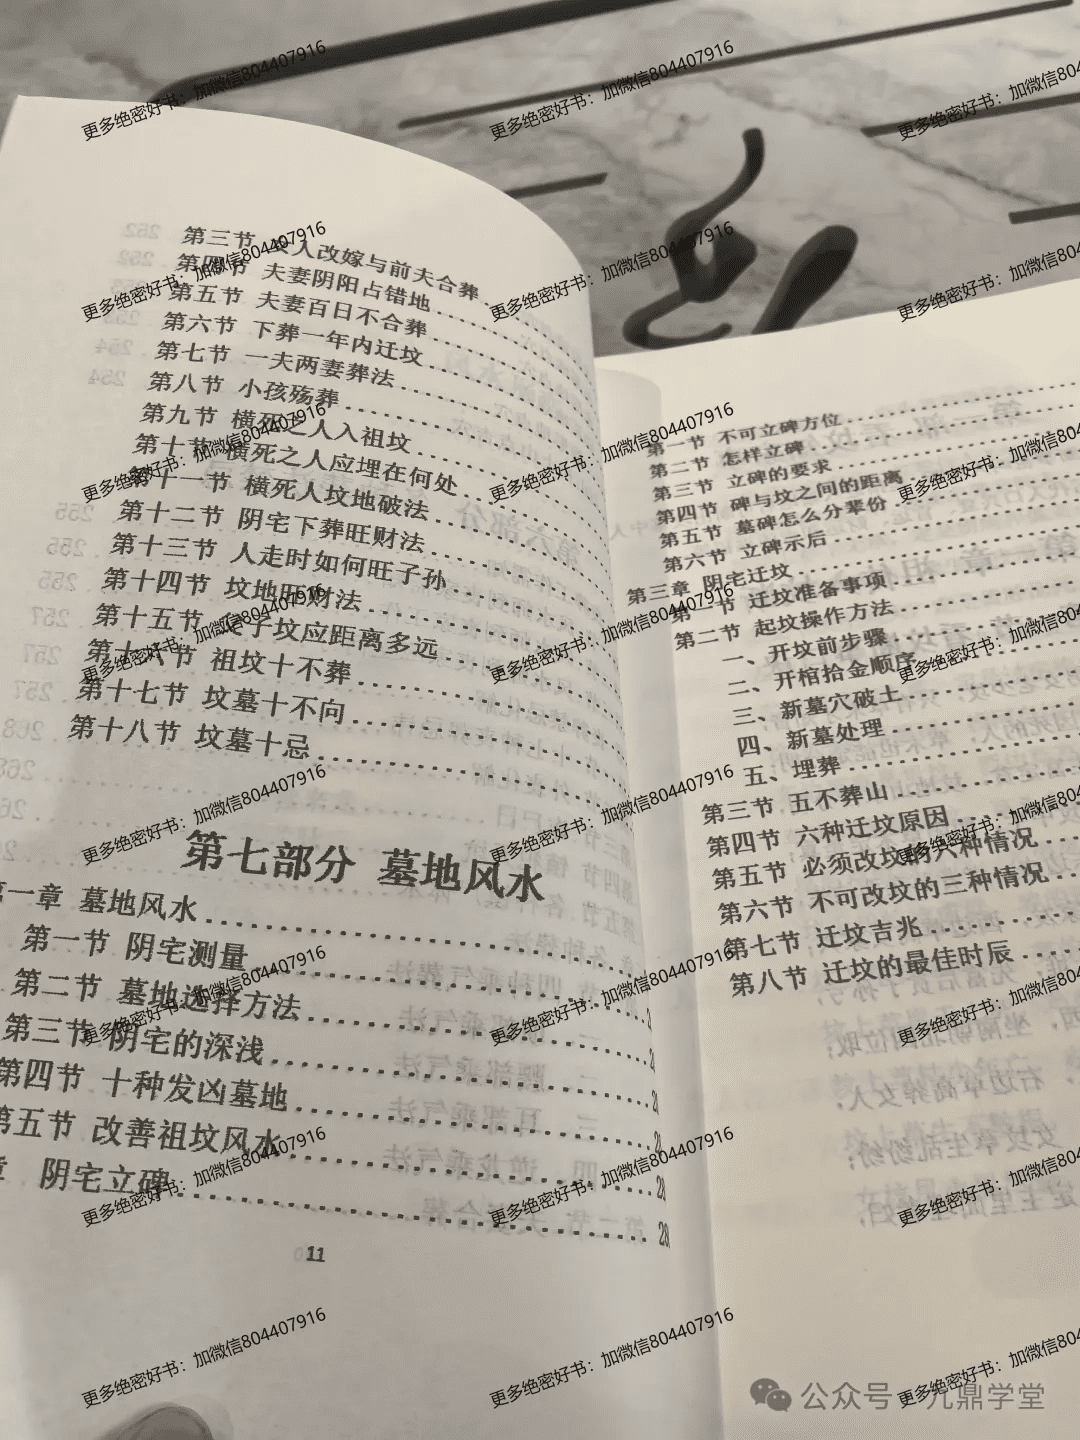 第三节 女人改嫁与前夫合葬
第四节 夫妻阴阳占错地
第五节 夫妻百日不合葬
第六节 下葬一年内迁坟
第七节 一夫两妻葬法
第八节 小孩殇葬
第九节 横死之人入祖坟
第十节 横死之人应埋在何处
第十一节 横死人坟地破法
第十二节 阴宅下葬旺财法
第十三节 人走时如何旺子孙
第十四节 坟地旺财法
第十五节 子坟应距离多远
第十六节 祖坟十不葬
第十七节 坟墓十不向
第十八节 坟墓十忌
第七部分 墓地风水
第一章 墓地风水
第一节 阴宅测量
第二节 墓地选择方法
第三节 阴宅的深浅
第四节 十种发凶墓地
第五节 改善祖坟风水
章 阴宅立碑
11
第一节 不可立碑方位
第二节 怎样立碑
第三节 立碑的要求
第四节 碑与坟之间的距离
第五节 墓碑怎么分辈份
第六节 立碑示后
第三章 阴宅迁坟
第一节 迁坟准备事项
第二节 起坟操作方法
一、开坟前步骤
二、开棺拾金顺序
三、新墓穴破土
四、新墓处理
五、埋葬
第三节 五不葬山
第四节 六种迁坟原因
第五节 必须改坟的六种情况
第六节 不可改坟的三种情况
第七节 迁坟吉兆
第八节 迁坟的最佳时辰
更多绝密好书：加微信804407916
公众号 · 九鼎学堂